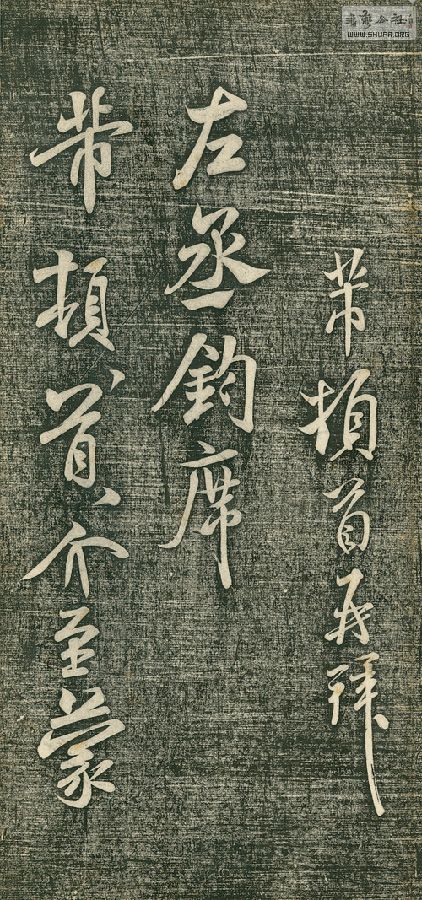 芾頓首再拜
左丞鈞席
芾頓、首、介至蒙
WWW.SHUFA.ORG